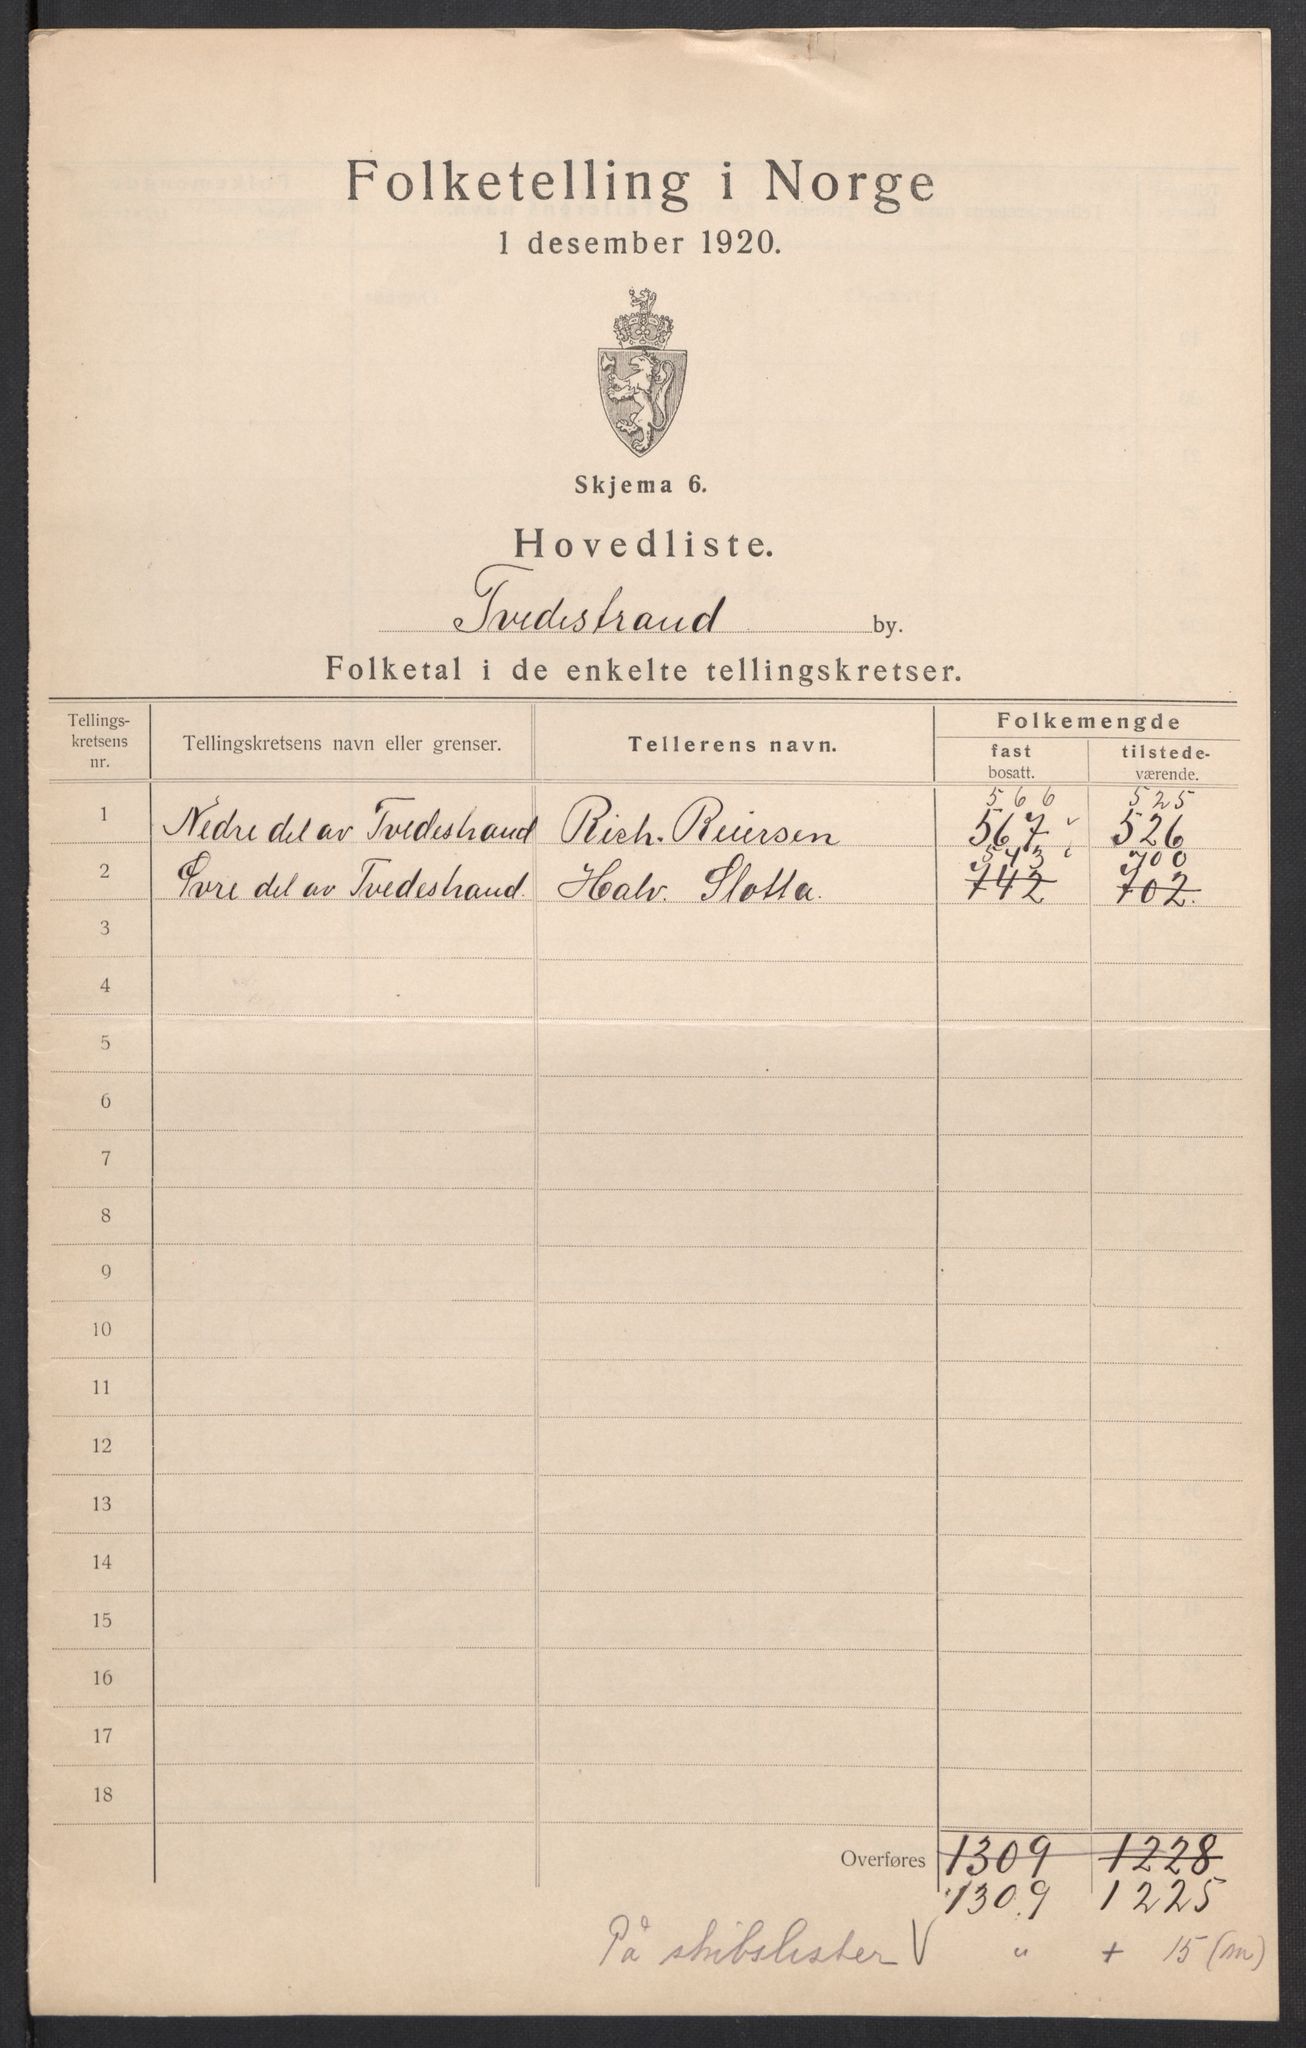 Folketelling i Norge
1 desember 1920.
Skjema 6.
Hovedliste.
Tvedestrand by.
Folketal i de enkelte tellingskretser.
Tellings- kretsens nr. Tellingskretsens navn eller grenser. Tellerens navn. Folkemengde
fast bosatt. tilstede- værende.
566 525
1 Nedre del av Tvedestrand Rich. Reiersen 567 526
743 700
2 Øvre del av Tvedestrand. Halv. Slotta. 742 702.
3
4
5
6
7
8
9
10
11
12
13
14
15
16
17
18
Overføres 1309 1228
1309 1225
På skibslister V " + 15 (m)